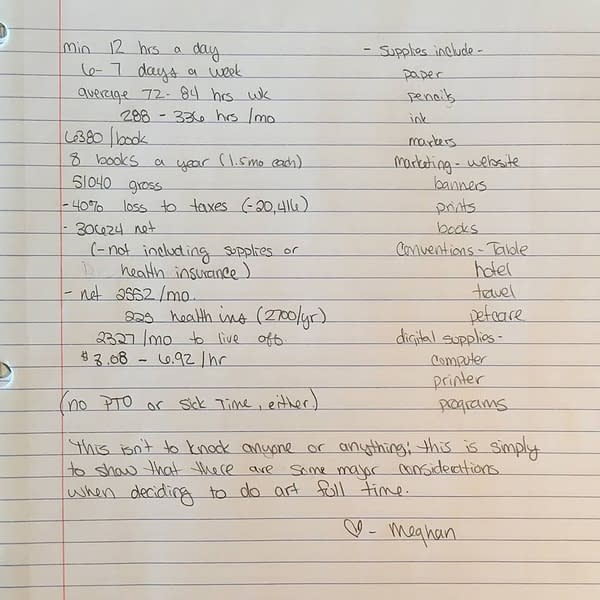 min 12 hrs a day
6-7 days a week
average 72-84 hrs wk
288 - 336 hrs /mo
6380 /book
8 books a year (1.5mo each)
51040 gross
-40% loss to taxes (-20,416)
- 30624 net
(-not including supplies or
health insurance)
- net 2552/mo.
225 health ins (2700/yr)
2327/mo to live off.
$8.08 - 6.92/hr
(no PTO or sick time, either.)
- supplies include -
paper
pencils
ink
markers
marketing - website
banners
prints
books
Conventions - Table
hotel
travel
petcare
digital supplies -
computer
printer
programs
This isn't to knock anyone or anything; this is simply
to show that there are some major considerations
when deciding to do art full time.
♡ - Meghan